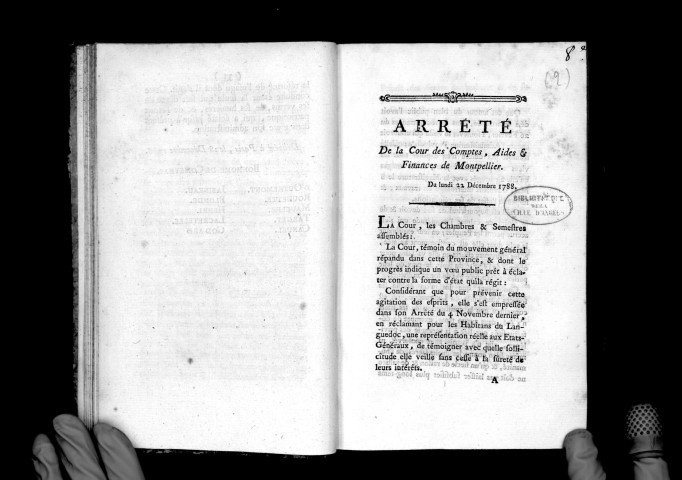 8
(2)
ARRÊTÉ
De la Cour des Comptes, Aides &
Finances de Montpellier.
Du lundi 22 Décembre 1788.
BIBLIOTHEQUE
DE LA
VILLE D'ANGERS
LA Cour, les Chambres & Semestres
assemblés:
La Cour, témoin du mouvement général
répandu dans cette Province, & dont le
progrès indique un vœu public prêt à écla-
ter contre la forme d'état qui la régit:
Considérant que pour prévenir cette
agitation des esprits, elle s'est empressée
dans son Arrêté du 4 Novembre dernier,
en réclamant pour les Habitans du Lan-
guedoc, une représentation réelle aux Etats-
Généraux, de témoigner avec quelle solli-
citude elle veille sans cesse à la sûreté de
leurs intérêts.
A